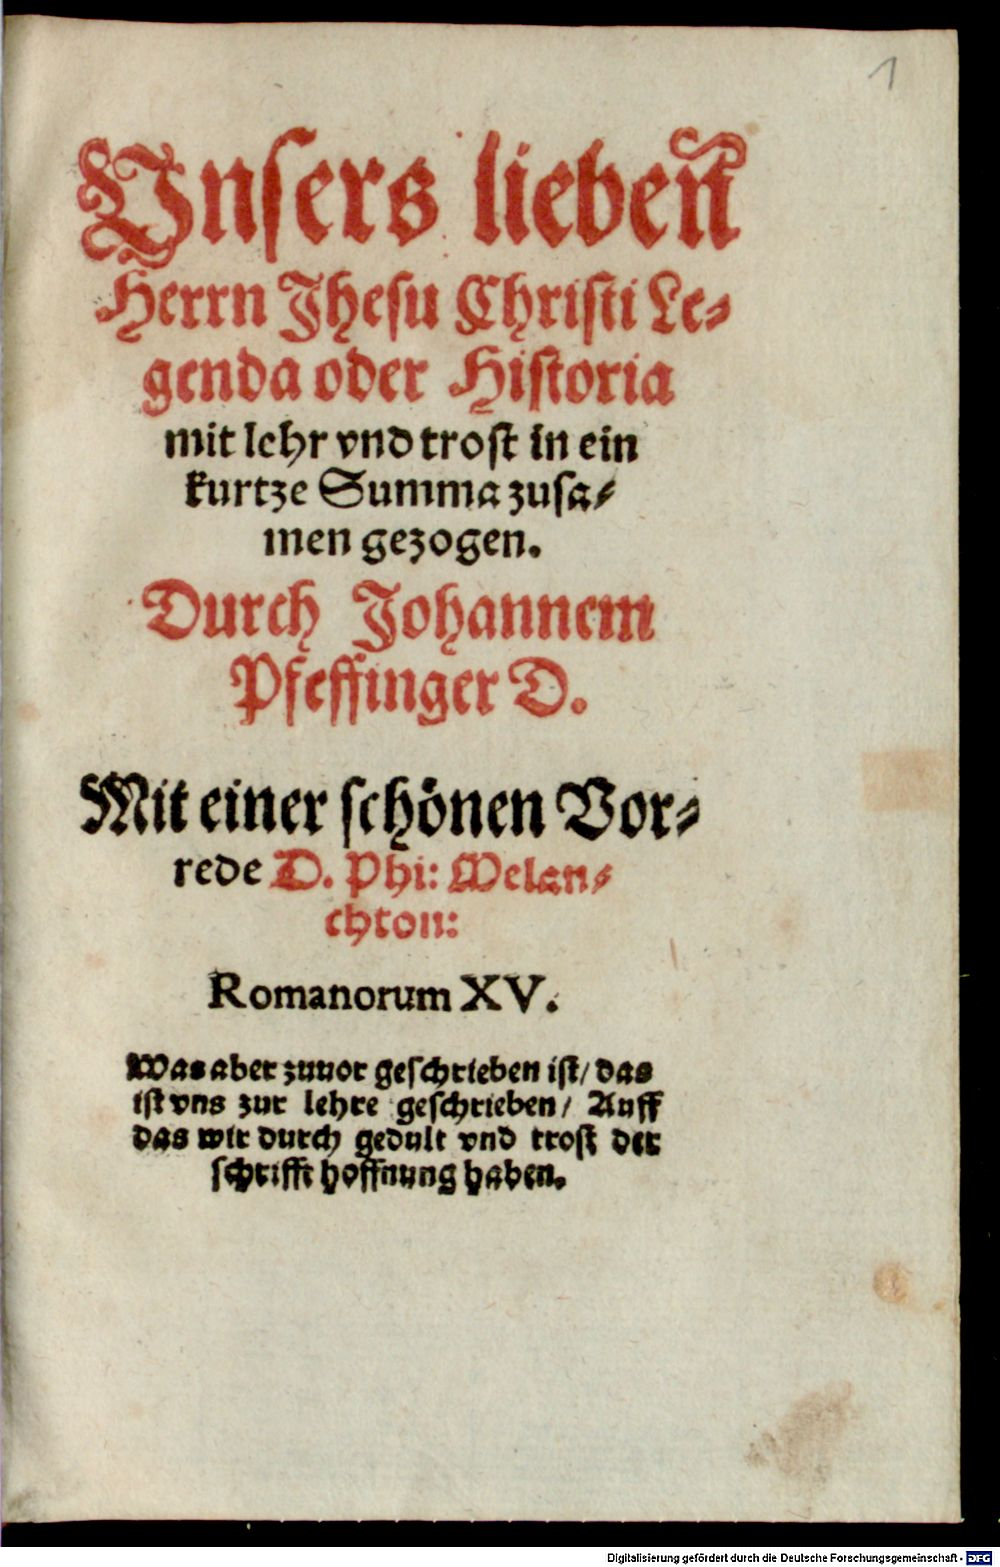 1
Vnsers lieben
Herrn Jhesu Christi Le-
genda oder Historia
mit lehr vnd trost in ein
kurtze Summa zusa-
men gezogen.
Durch Johannem
Pfeffinger D.
Mit einer schönen Vor-
rede D. Phi: Melan-
chton:
Romanorum XV.
Was aber zuuor geschrieben ist/ das
ist vns zur lehre geschrieben/ Auff
das wir durch gedult vnd trost der
schrifft hoffnung haben.
Digitalisierung gefördert durch die Deutsche Forschungsgemeinschaft - DFG